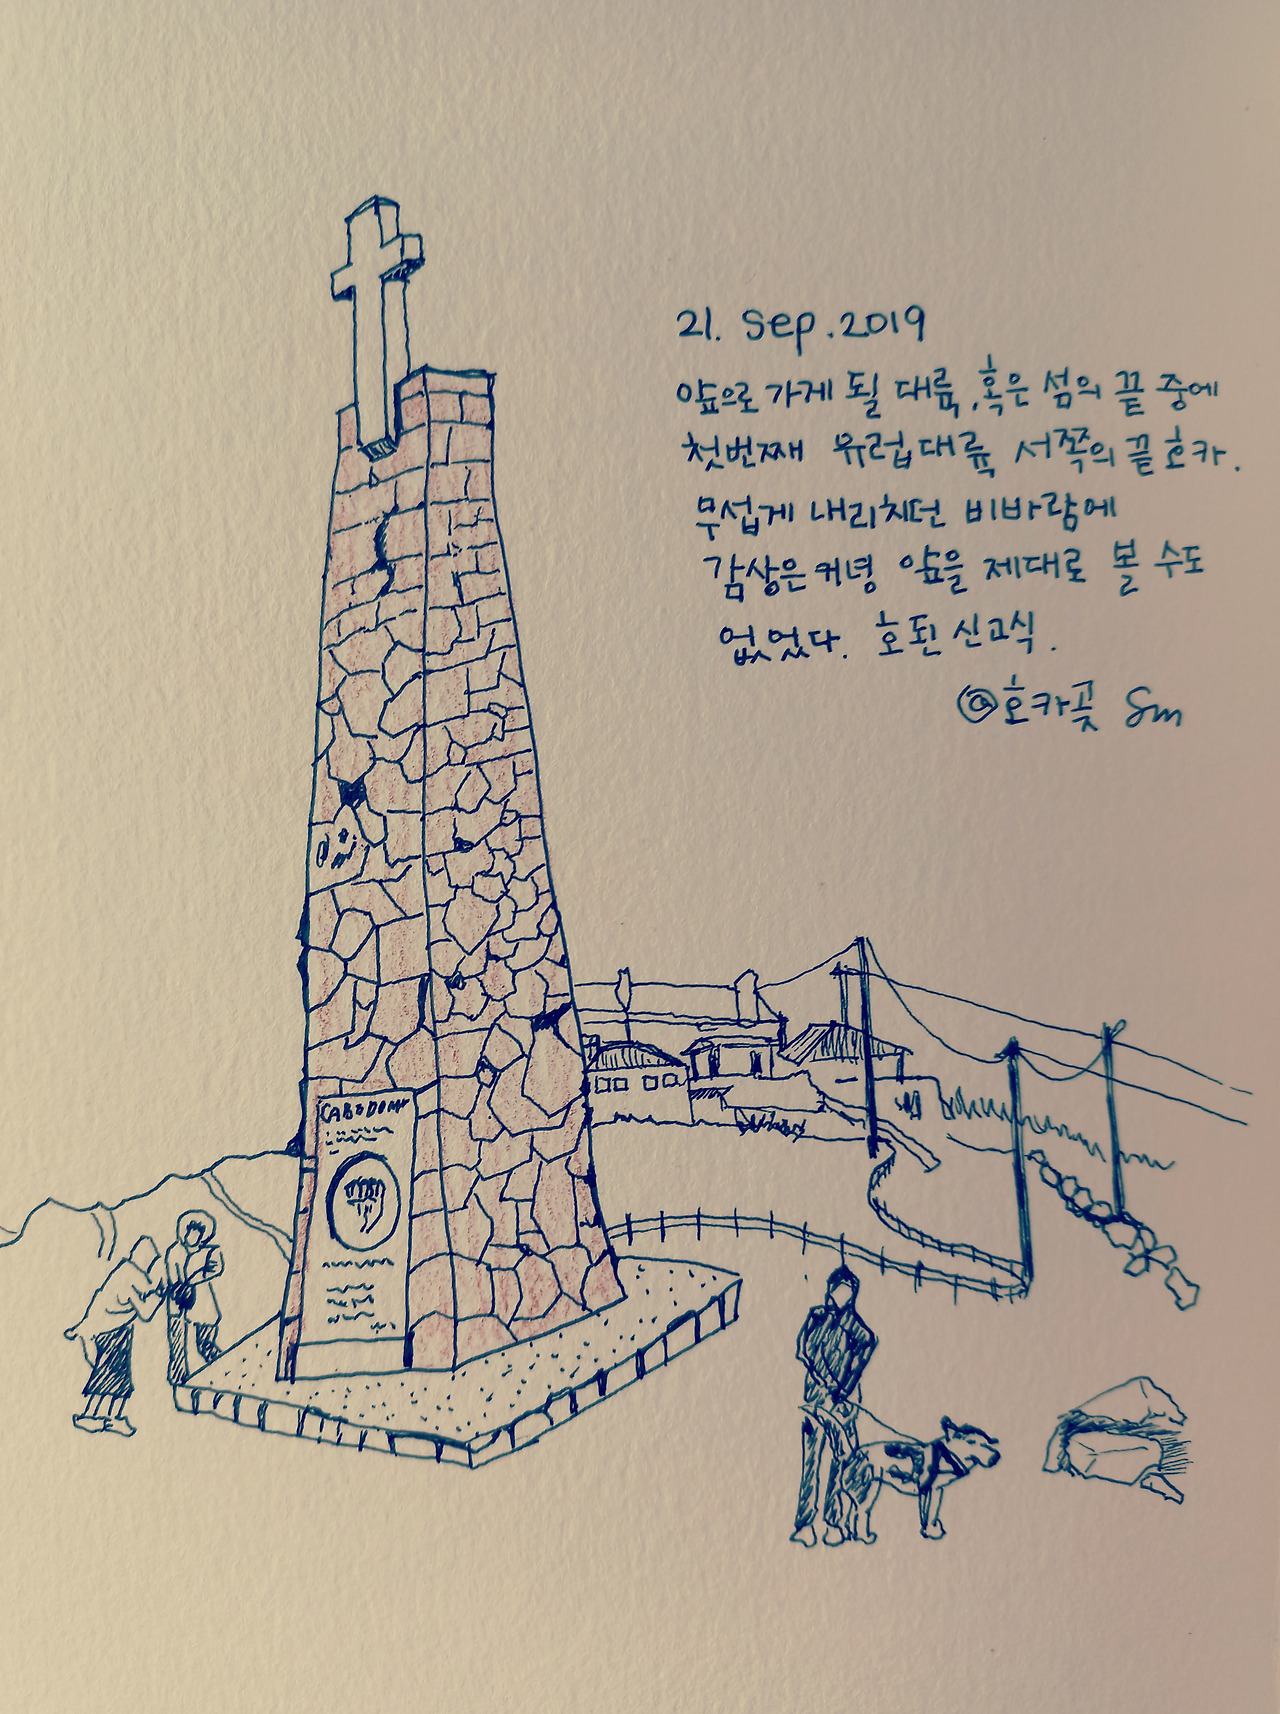 21. Sep. 2019
앞으로 가게 될 대륙, 혹은 섬의 끝 중에
첫번째 유럽대륙 서쪽의 끝 호카.
무섭게 내리치던 비바람에
감상은 커녕 앞을 제대로 볼 수도
없었다. 호된 신고식.
@호카곶 Sm